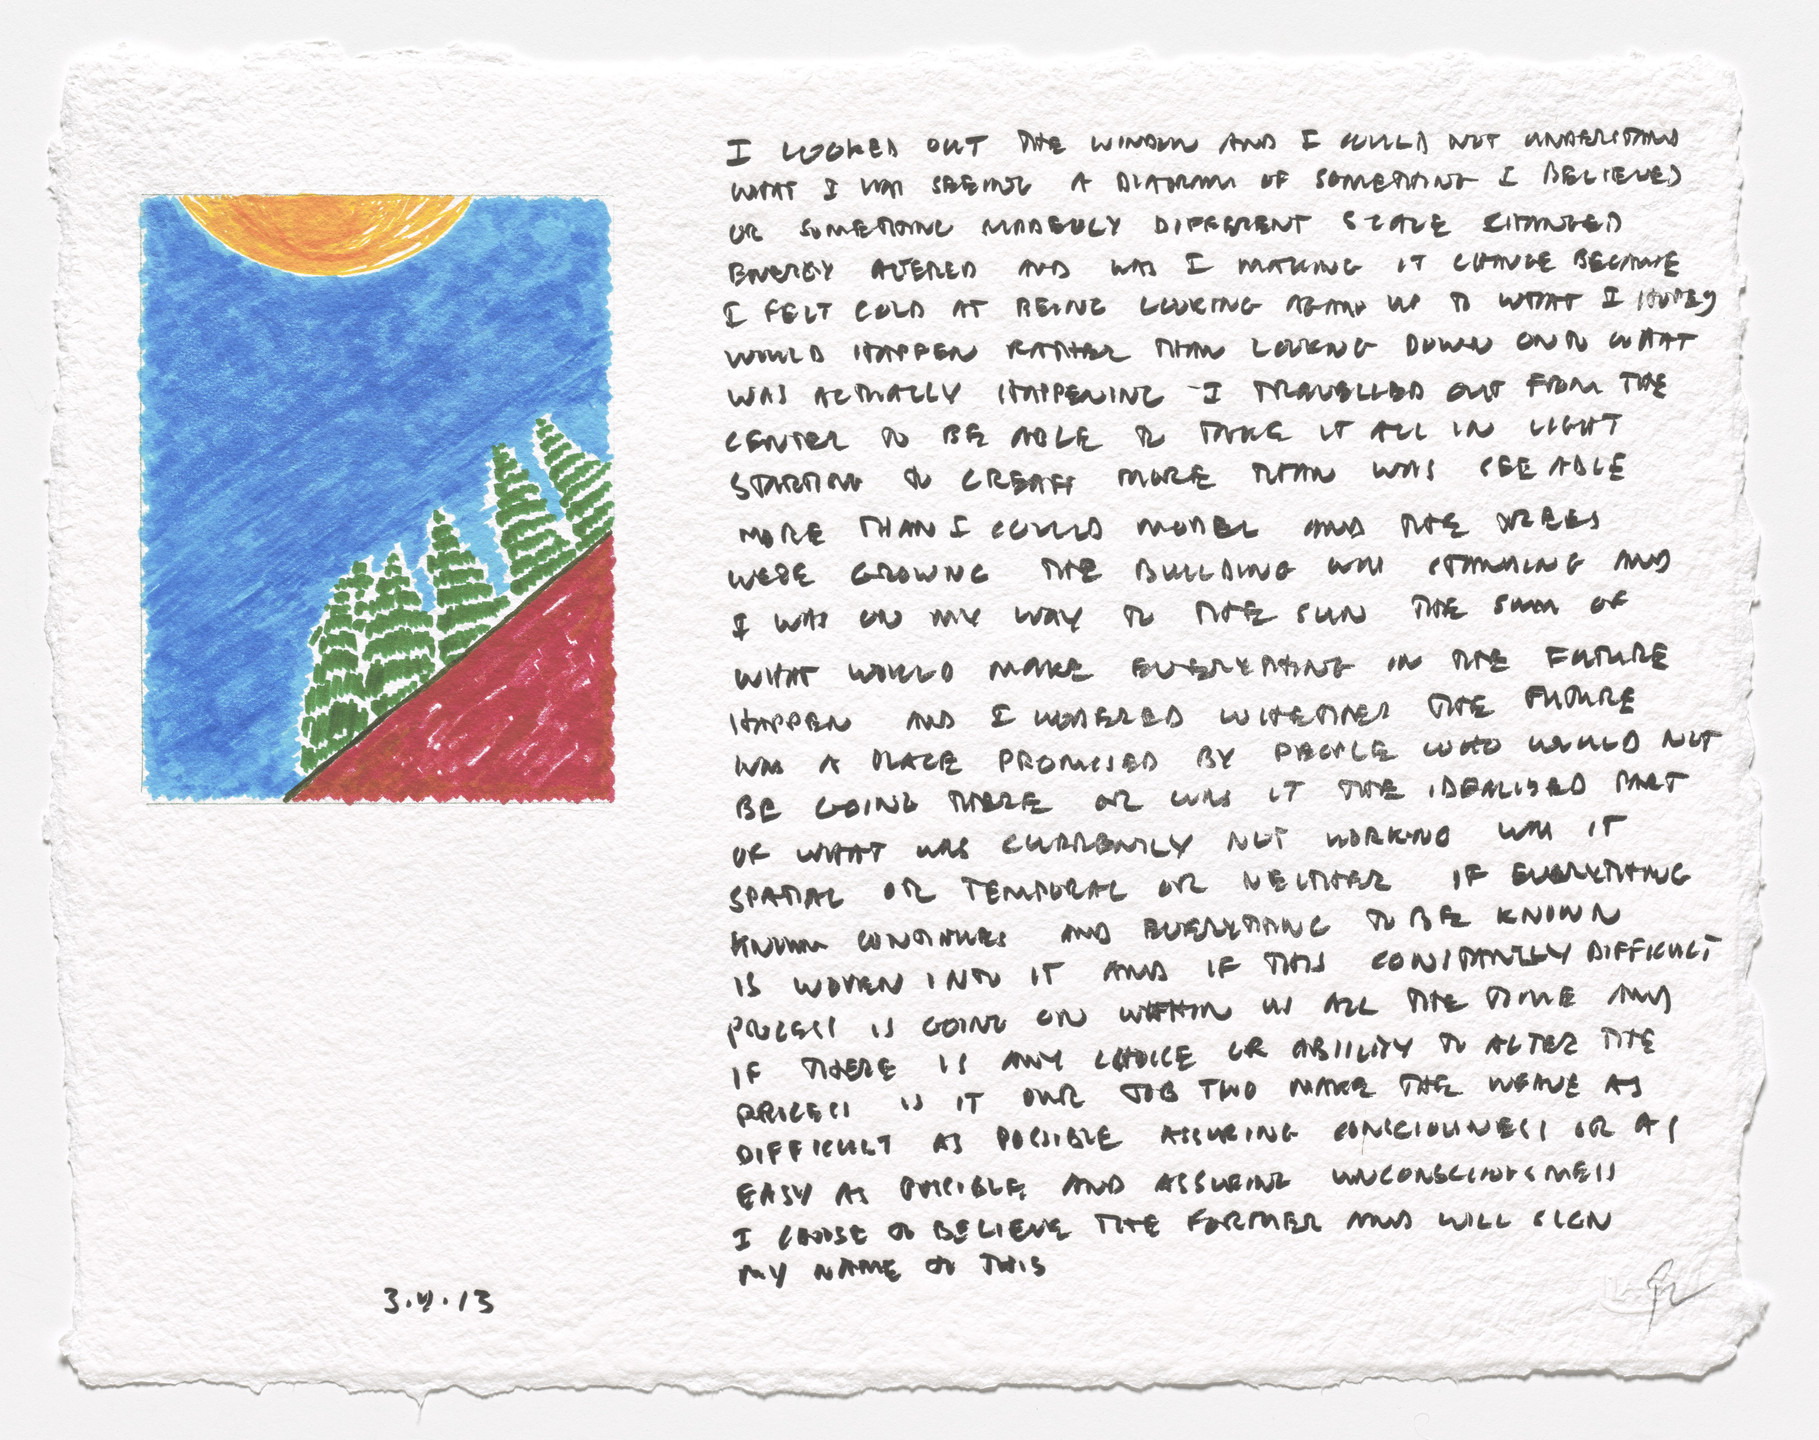 I LOOKED OUT THE WINDOW AND I COULD NOT UNDERSTAND
WHAT I WAS SEEING A DIAGRAM OF SOMETHING I BELIEVED
OR SOMETHING MADEULY DIFFERENT SCALE CHANGED
ENERGY ALTERED AND WAS I MAKING IT CHANGE BECAUSE
I FELT COLD AT BEING LOOKING AGAIN UP TO WHAT I HOPED
WOULD HAPPEN RATHER THAN LOOKING DOWN ONTO WHAT
WAS ACTUALLY HAPPENING I TRAVELLED OUT FROM THE
CENTER TO BE ABLE TO TAKE IT ALL IN LIGHT
STARTING TO CREATE MORE THAN WAS SEEABLE
MORE THAN I COULD MODEL AND THE TREES
WERE GROWNG THE BUILDING WAS STANDING AND
I WAS ON MY WAY TO THE SUN THE SUM OF
WHAT WOULD MAKE EVERYTHING IN THE FUTURE
HAPPEN AND I WONDERED WHETHER THE FUTURE
WAS A PLACE PROMISED BY PEOPLE WHO WOULD NOT
BE GOING THERE OR WAS IT THE IDEALISED PART
OF WHAT WAS CURRENTLY NOT WORKING WAS IT
SPATIAL OR TEMPORAL OR NEITHER IF EVERYTHING
KNOWN CONTINUES AND EVERYTHING TO BE KNOWN
IS WOVEN INTO IT AND IF THIS CONSTANTLY DIFFICULT
PROCESS IS GOING ON WITHIN US ALL THE TIME AND
IF THERE IS ANY CHOICE OR ABILITY TO ALTER THE
PROCESS IS IT OUR JOB TWO MAKE THE WEAVE AS
DIFFICULT AS POSSIBLE ASSURING CONSCIOUSNESS OR AS
EASY AS POSSIBLE AND ASSURING UNCONSCIOUSNESS
I CHOOSE TO BELIEVE THE FORMER AND WILL SIGN
MY NAME TO THIS
3.4.13